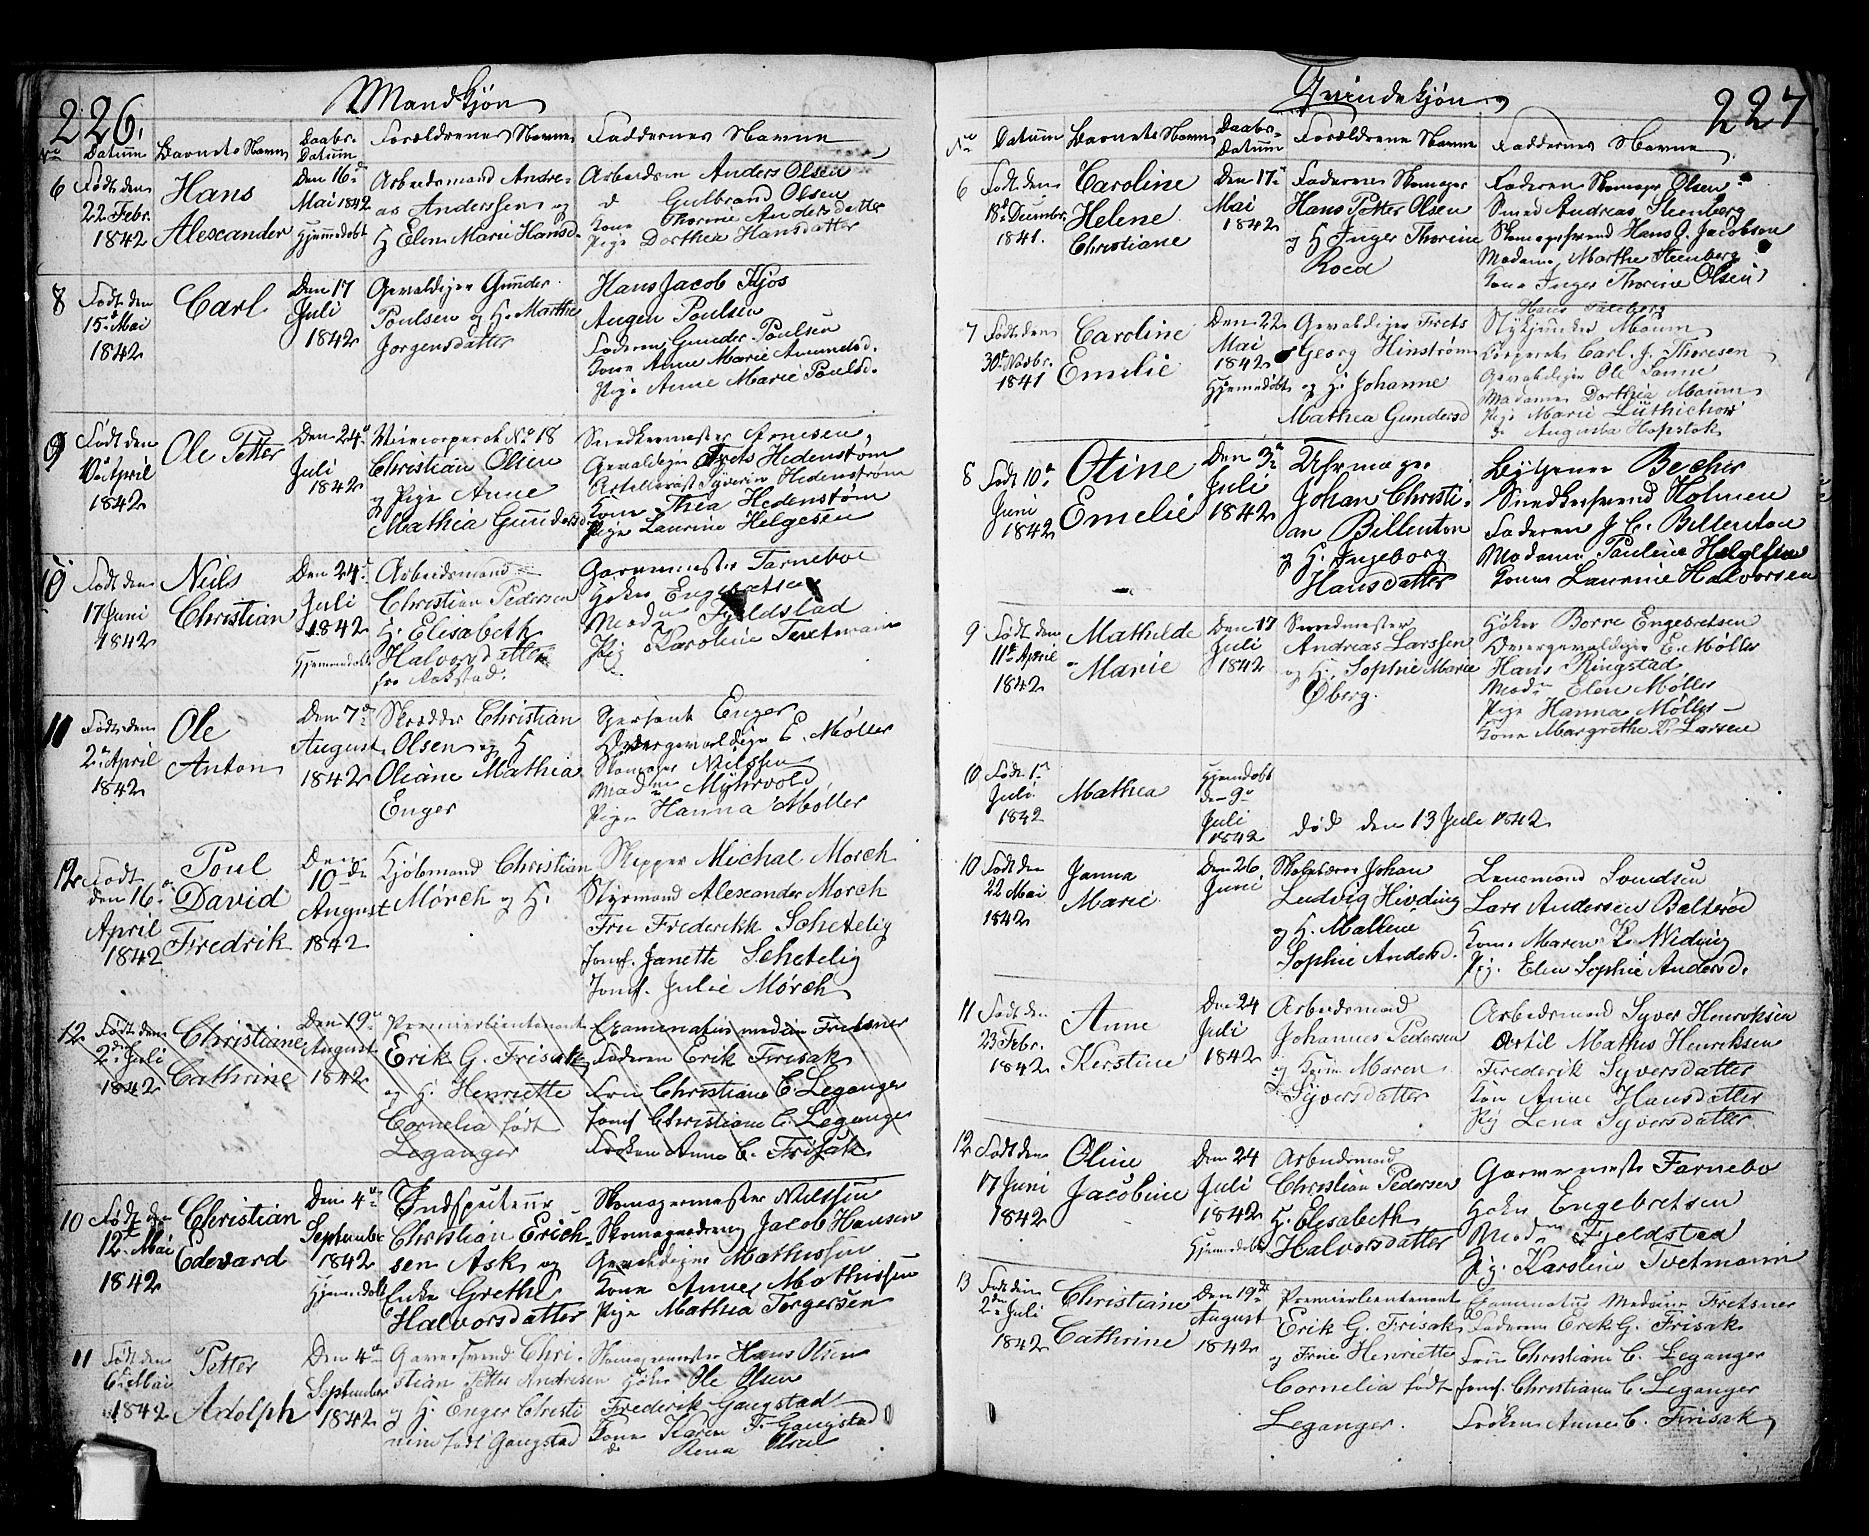 226.
Mandkjøn
No
Datum
Barnets Navn
Daabs-
Datum
Forældrenes Navne
Faddernes Navne
6
Født den
22 Febr.
1842
Hans
Alexander
Den 16de
Mai 1842
Hjemmedøbt
Arbeidsmand Andre-
as Anderssen og
H Elen Marie Hansd.
Arbeidsm Anders Olsen
d Gulbrand Olsen
Kone Thorine Andersdatter
Pige Dorthea Hansdatter
8
Født den
15d Mai
1842
Carl
Den 17
Juli
1842
Gevaldiger Gunder
Poulsen og H. Marthe
Jorgensdatter
Hans Jacob Kjos
Augen Poulsen
Faderen Gunder Poulsen
Kone Anne Marie Amundsd.
Pige Anne Marie Poulsd.
9
Født den
10de April
1842
Ole Petter
Den 24d
Juli
1842
Viicecorporal No 18
Christian Olsen
og Pige Anne
Mathea Gundersd
Snedkermester Arnesen,
Gevaldiger Frets Hedenstøm
Syverin Hedenstrøm
Kone Thea Hedenstøm
Pige Laurine Helgesen
10
Født den
17 Juni
1842
Niels
Christian
Den 24d
Juli
1842
Hjemmedøbt
Arbeidsmand
Christian Pedersen
H. Elisabeth
Halvorsdatter
Garvermester Farneboe
Høker Engebretsen
Madme Fjeldstad
Pig Karoline Tvetmann
11
Født den
2d April
1842
Ole
Anton
Den 7de
August
1842
Skrædder Christian
Olsen og H
Oleane Mathea
Enger
Sersjant Enger
Overgevaldiger E. Møller
Skomager Nilssen
Madme Myhrvold
Pige Hanna Møller
12
Født
den 16d
April
1842
Poul
David
Fredrik
Den
10de
August
1842
Kjøbmand Christian
Mørch og H.
Skipper Michal Morch
Styrmand Alexander Morch
Fru Frederikk Schetelig
Jomf. Janette Schetelig
Jomf. Julie Mørch
12
Født den
2den Juli
1842
Christiane
Cathrine
Den 19de
August
1842
Premierlieutenant
Erik G. Frisak
og H. Henriette
Cornelia født
Leganger
Examinatus medicin Fretsner
Faderen Erik Frisak
Fru Christiane C. Leganger
Jomf Christiane C. Leganger
Frøken Anne C. Frisak
10
Født den
12te Mai
1842
Christian
Edevard
Den 4de
September
1842
Hjemmedøbt
Indspecteur
Christian Erich-
sen Ask og
Enke Grethe
Halvorsdatter
Skomagermester Nilssen
Skomagerdreng Jacob Hansen
Gevaldiger Mathissen
Kone Anne Mathissen
Pige Mathea Torgersen
11
Født den
6te Mai
1842
Petter
Adolph
Den 4de
September
1842
Garversvend Chri-
stian Petter Andresen
og H. Enger Christi
nine født Gangstad
Skomagermester Hans Olsen
Høker Ole Olsen
Frederik Gangstad
Kone Karen F. Gangstad
d Rena Olsen
227
Qvindekjøn
No
Datum
Barnets Navn
Daabs-
Datum
Forældrene Navne
Faddernes Navne
6
Født den
18de Decembr.
1841.
Caroline
Helene
Christiane
Den 17d
Mai
1842
Faderen Skomager
Hans Petter Olsen
og H. Inger Thorine
Roed
Faderen Skomager Olsen
Smed Andreas Steenberg
Skomagersvend Hans J. Jacobsen
Madame Marthe Steenberg
Kone Inger Thorine Olsen
7
Født den
30te Novbr.
1841
Caroline
Emelie
Den 22
Mai
1842
Hjemmedøbt
Gevaldiger Frets
Georg Hinstrøm
og H. Johanne
Mathea Gundersd
Hans Faleberg
Stykjunker Maum
Corporal Carl J. Thoresen
Gevaldiger Ole Sanne
Madame Dorthea Maum
Pige Marie
d. Augusta Hapstok
8
Født 10de
Juni
1842
Oline
Emelie
Den 3d
Juli
1842
Uhrmager
Johan Christi-
an Billenton
og H. Ingeborg
Hansdatter
Becher
Snedkersvend Holmen
Faderen J. C. Billenton
Madame Pauline Helgesen
Kone Laurine Halvorsen
9
Født den
11te April
1842
Mathilde
Marie
Den 17
Juli
1842
Smedmester
Andreas Larssen
og H. Sophie Marie
Øberg.
Høker Borre Engebretsen
Overgevaldiger E. Møller
Hans Ringstad
Madme Elen Møller
Pige Hanna Møller
Kone Margrethe K. Larsen
10
Født 1ste
Juli
1842
Mathea
Hjemdøbt
den 9de
Juli
1842
død den 13 Juli 1842
10
Født den
22 Mai
1842
Janna
Marie
Den 26
Juni
Skolelærer Johan
Ludvig Hivding
og H. Mallene
Sophie Andersd.
Lensmand Svendsen
Lars Andersen Balterød
Kone Maren K. Widing
Pig. Elen Sophie Andersd.
11
Født den
23 Febr.
1842
Anne
Kerstine
Den 24
Juli
1842
Arbeidsmand
Johannes Pedersen
og Kone Maren
Syversdatter
Arbeidsmand Syver Henriksen
Artil Mathis Henriksen
Frederik Syversdatter
Kon Anne Hansdatter
Pig Lena Syversdatter
12
Født den
17 Juni
1842
Oline
Jacobine
Den 24
Juli
1842
Hjemmedøbt
Arbeidsmand
Christian Pedersen
H. Elisabeth
Halvorsdatter
Garvermester Farnebo
Høker Engebretsen
Madme Fjeldstea
Pig. Karoline Tvetmann
13
Født den
2den Juli
1842
Christiane
Cathrine
Den 19de
August
1842
Premierlieutenant
Erik G. Frisak
og Frue Henriette
Cornelia født
Leganger.
Examinatus Medicine Fretsner
Faderen Erik G. Frisak
Fru Christiane C. Leganger
Jomf. Christiane C. Leganger
Frøken Anne C. Frisak